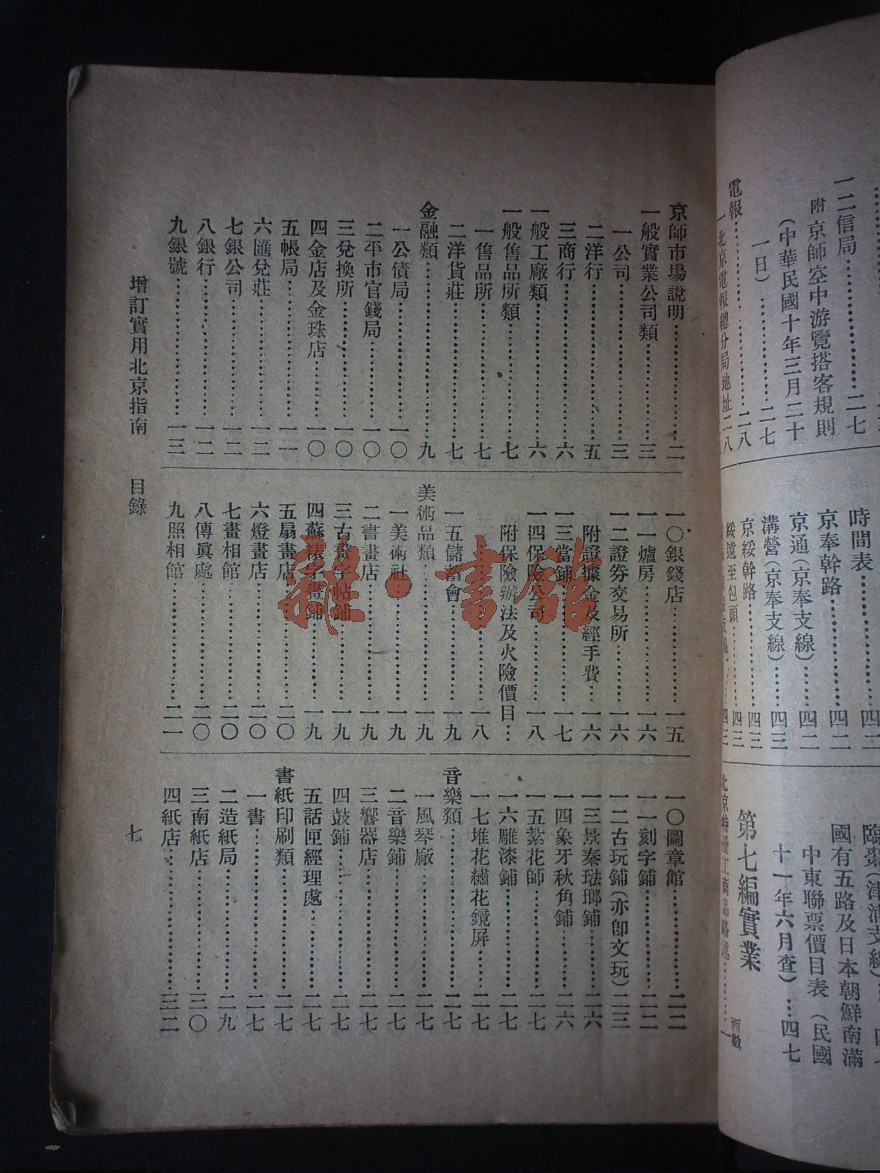 一二信局……二七
附京師空中游覽搭客規則
(中華民國十年三月二十
一日)……二七
電報……二八
一北京電報總分局地址二八
時間表……四二
京奉幹路……四二
京通(京奉支線)……四二
溝營(京奉支線)……四三
京綏幹路……四三
綏遠至包頭……四三
臨棗(津浦支線)
國有五路及日本朝鮮南滿
中東聯票價目表(民國
十一年六月查)…四七
第七編實業
頁數
京師市場說明……二
一般實業公司類……三
一公司……三
二洋行……五
三商行……六
一般工廠類……六
一般售品所類……七
一售品所……七
二洋貨莊……七
金融類……九
一公債局……一〇
二平市官錢局……一〇
三兌換所……一〇
四金店及金珠店……一〇
五帳局……一一
六匯兌莊……一二
七銀公司……一二
八銀行……一二
九銀號……一三
一〇銀錢店……一五
一一爐房……一六
一二證券交易所……一六
附證據金及經手費…一六
一三當鋪……一七
一四保險公司……一八
附保險辦法及火險價目…
……一八
一五儲蓄會……一九
美術品類……一九
一美術社……一九
二書畫店……一九
三古畫字帖鋪……一九
四蘇裱字畫鋪……一九
五扇畫店……二〇
六燈畫店……二〇
七畫相館……二〇
八傳眞處……二〇
九照相館……二一
一〇圖章館……二二
一一刻字鋪……二二
一二古玩鋪(亦卽文玩)二三
一三景秦琺瑯鋪……二六
一四象牙秋角鋪……二六
一五紮花師……二七
一六雕漆鋪……二七
一七堆花繡花鏡屏……二七
音樂類……二七
一風琴廠……二七
二音樂鋪……二七
三響器店……二七
四鼓鋪……二七
五話匣經理處……二七
書紙印刷類……二七
一書……二七
二造紙局……二九
三南紙店……三〇
四紙店……三二
增訂實用北京指南 目錄 七
雜·書館